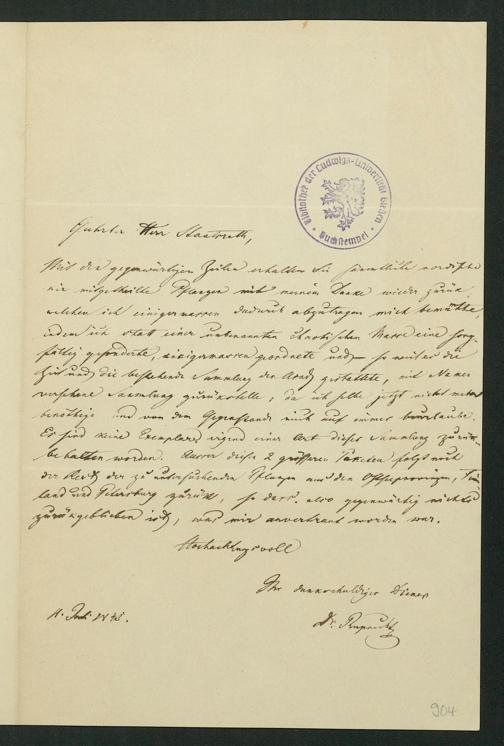 Bibliothek der Ludwigs-Universität Giessen
Buchstempel
Geehrter Herr Staatsrath,
Mit den gegenwärtigen Zeilen erhalten Sie sämmtliche nordische
mir mitgetheilte Pflanzen mit meinem Danke wieder zurück,
welchen ich einigermassen dadurch abzutragen mich bemühte,
indem ich statt einer unbenannten chaotischen Masse eine sorg-
fältig gesonderte, einigermassen geordnete und, so weit es die
Zeit und die bestehende Sammlung der Acad. gestattete, mit Namen
versehene Sammlung zurückstelle; da ich selbe jetzt nicht mehr
benöthige und von dem Gegenstande mich auf immer beurlaube.
Es sind keine Exemplare irgend einer Art dieser Sammlung zurück-
behalten worden. Ausser diesen 2 grösseren Paketen folgt noch
der Rest der zu untersuchenden Pflanzen aus den Ostseeprovinzen, Fin-
land und Petersburg zurück, so dass also gegenwärtig nichts
zurückgeblieben ist, was mir anvertraut worden war.
Hochachtungsvoll
Ihr dankschuldiger Diener
Dr. Ruprecht
11. 1845.
904